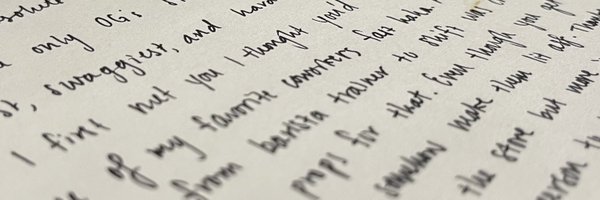 only OG's
st, swaggiest, and hard
I first met you I thought you'd
of my favorite coworkers fast haha.
from barista trainer to shift
props for that. Even though you
somehow make them lit asf. Thank
the store but more
person to